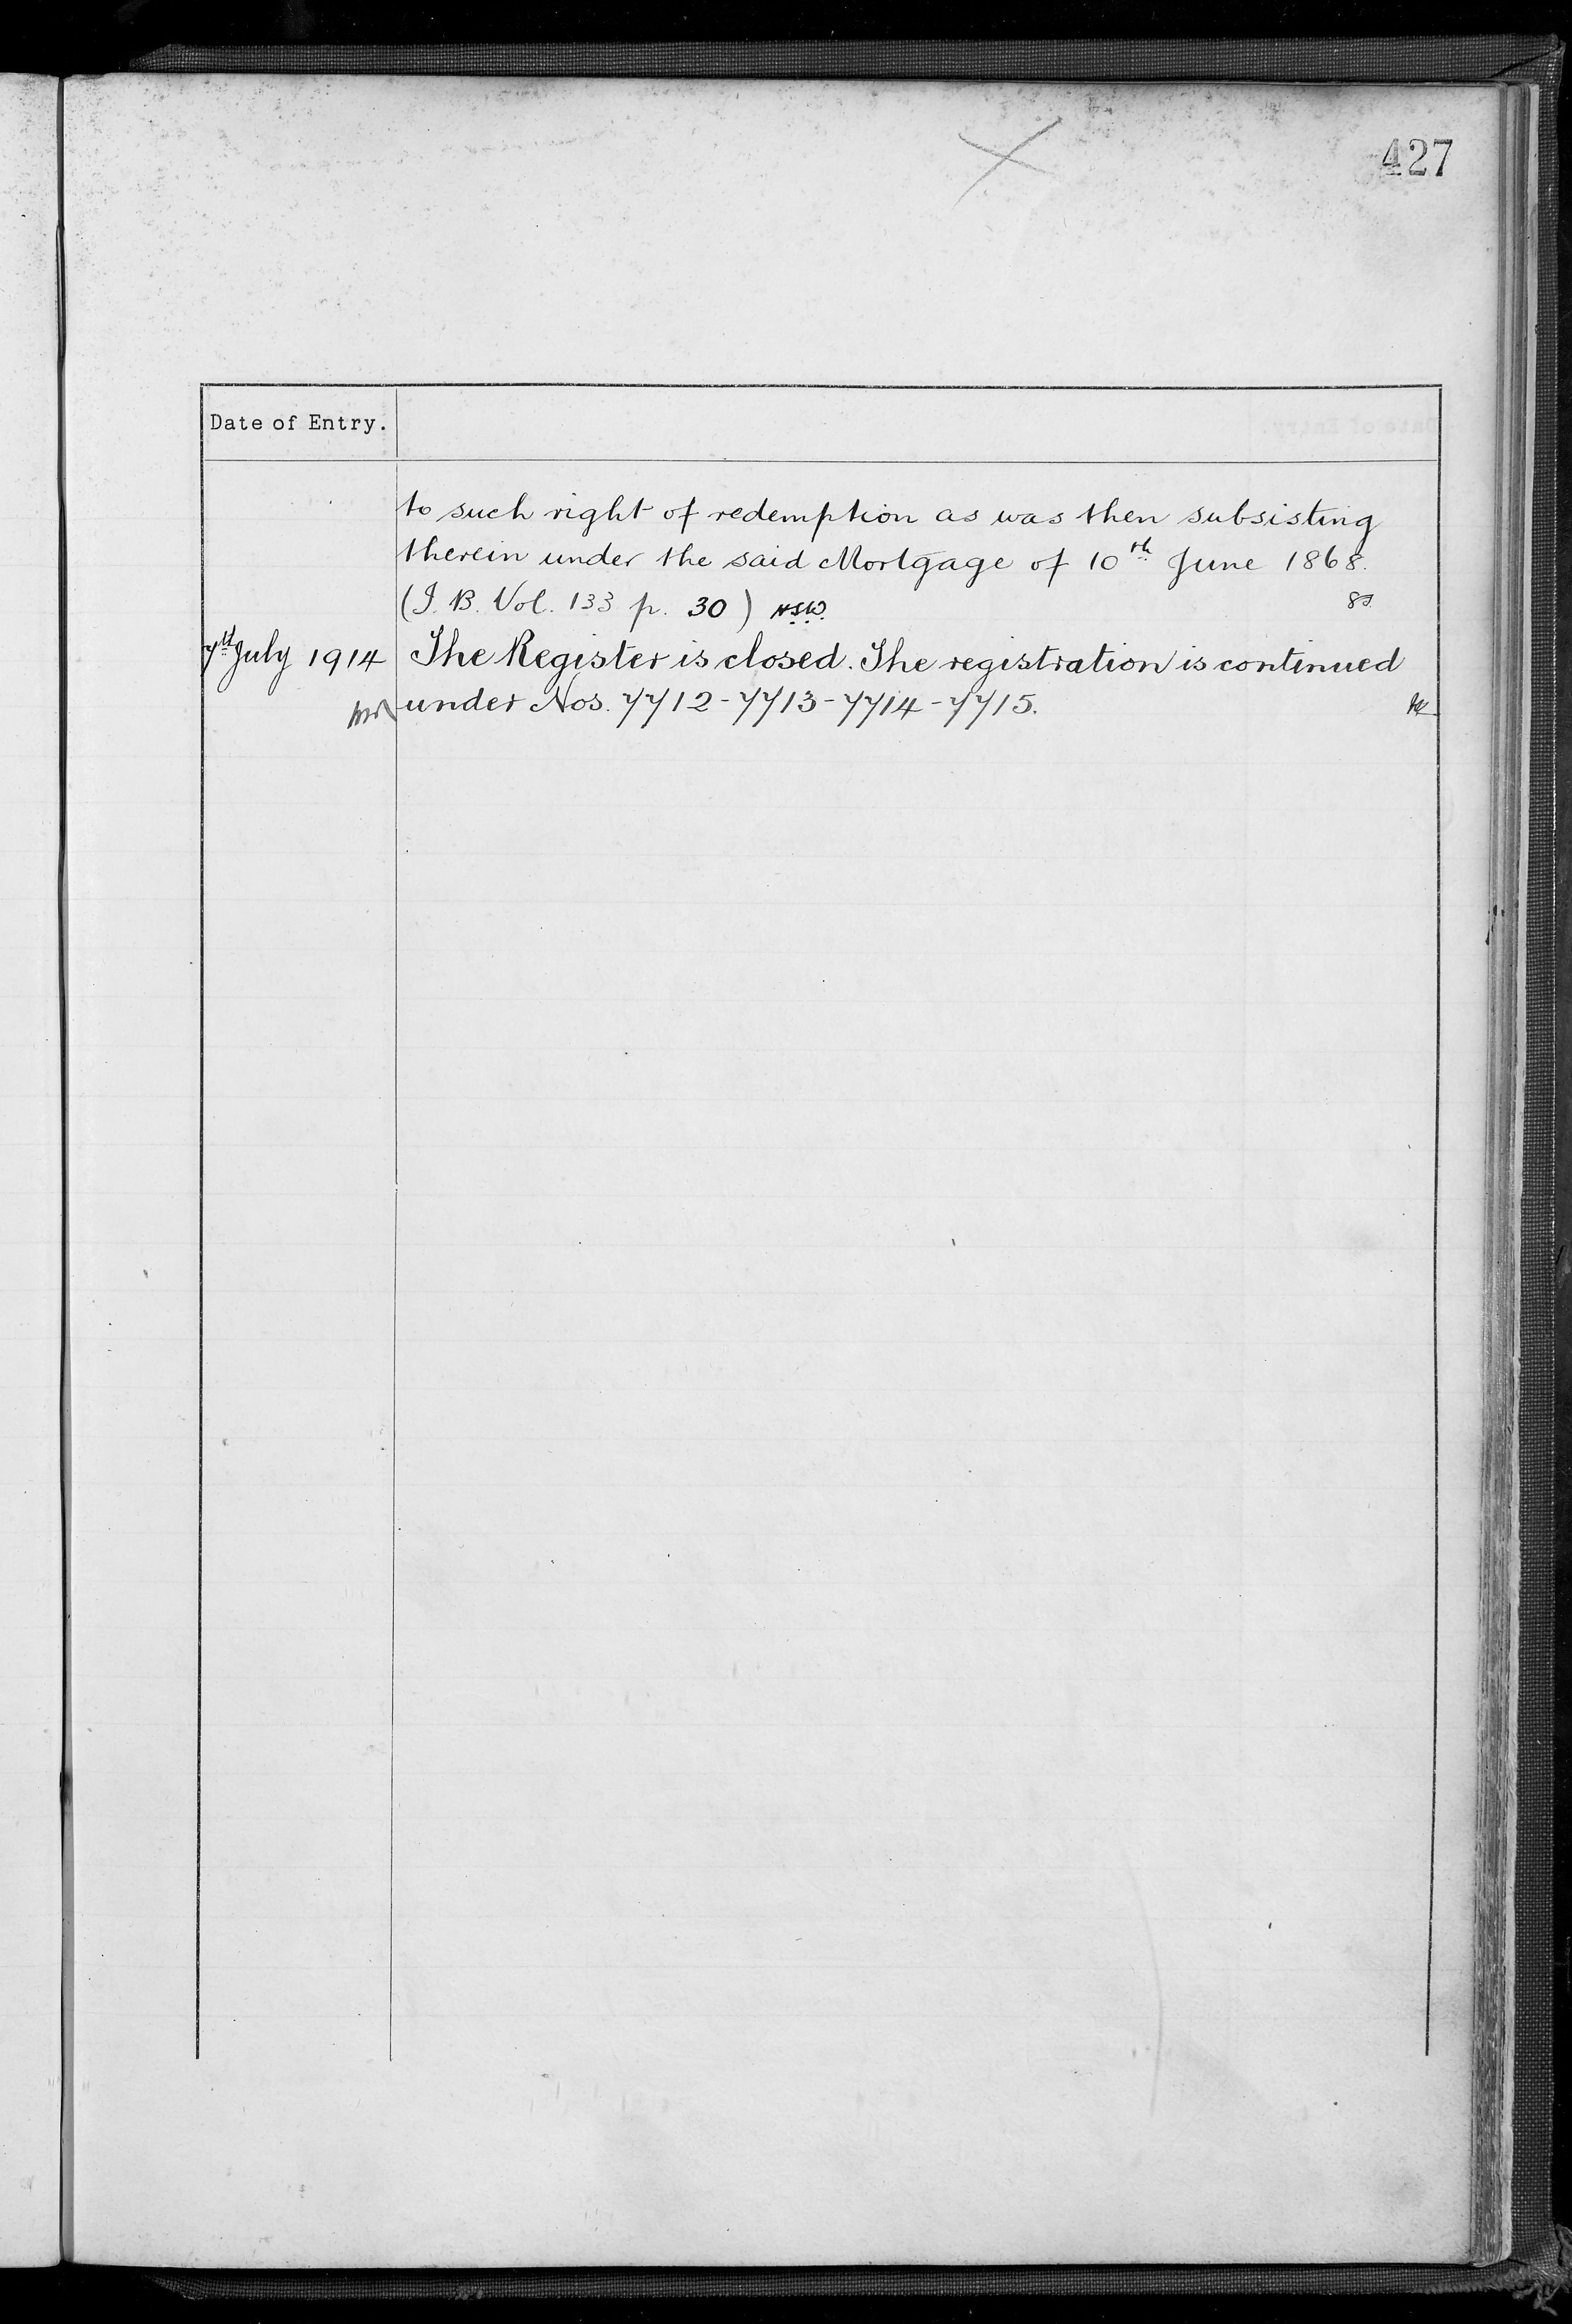 427
Date of Entry.
to such right of redemption as was then subsisting
therein under the said Mortgage of 10th June 1868.
(I. B. Vol. 133 p. 30) N.S.W.
7th July 1914 The Register is closed. The registration is continued
under Nos. 7712-7713-7714-7715.